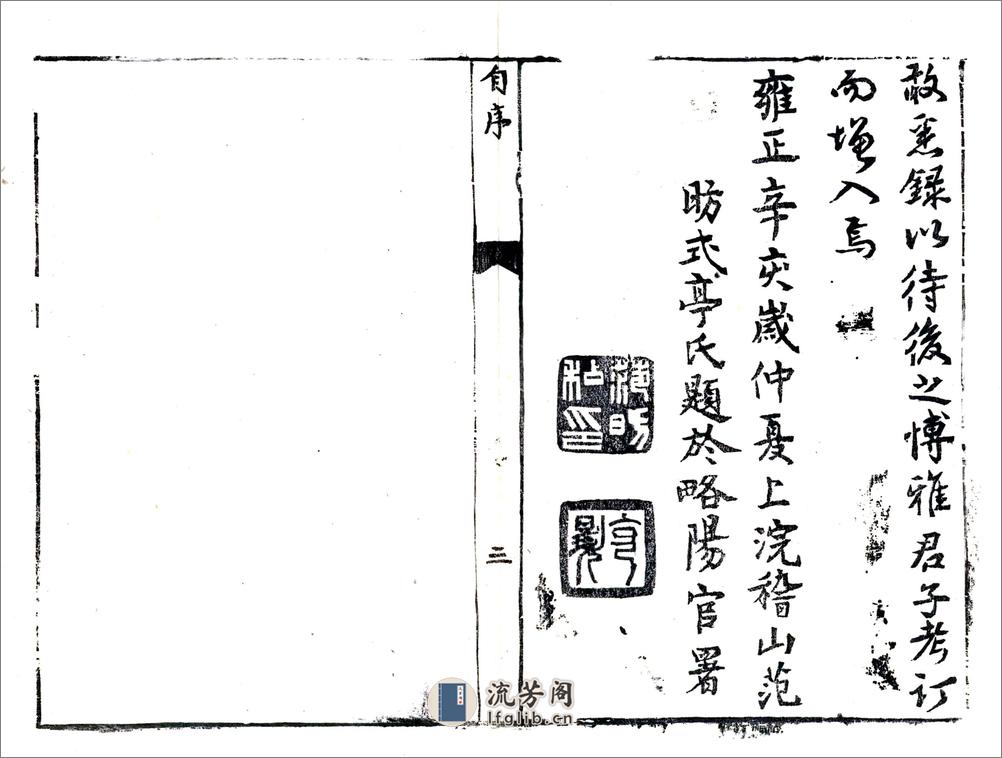 故悉録以待後之愽雅君子考訂
而增入焉
雍正辛亥歲仲夏上浣稽山范
昉式亭氏題於略陽官署
自序
三
流芳阁
lfglib.cn